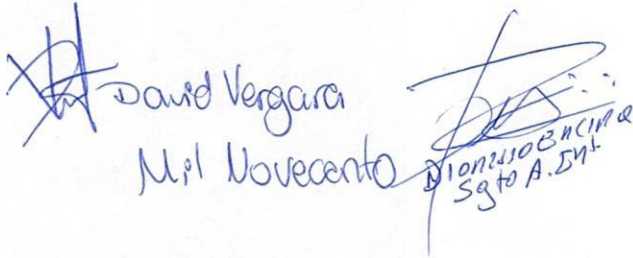 David Vergara
Mil Novecento
Dionisio Encina
Sgto A. Int